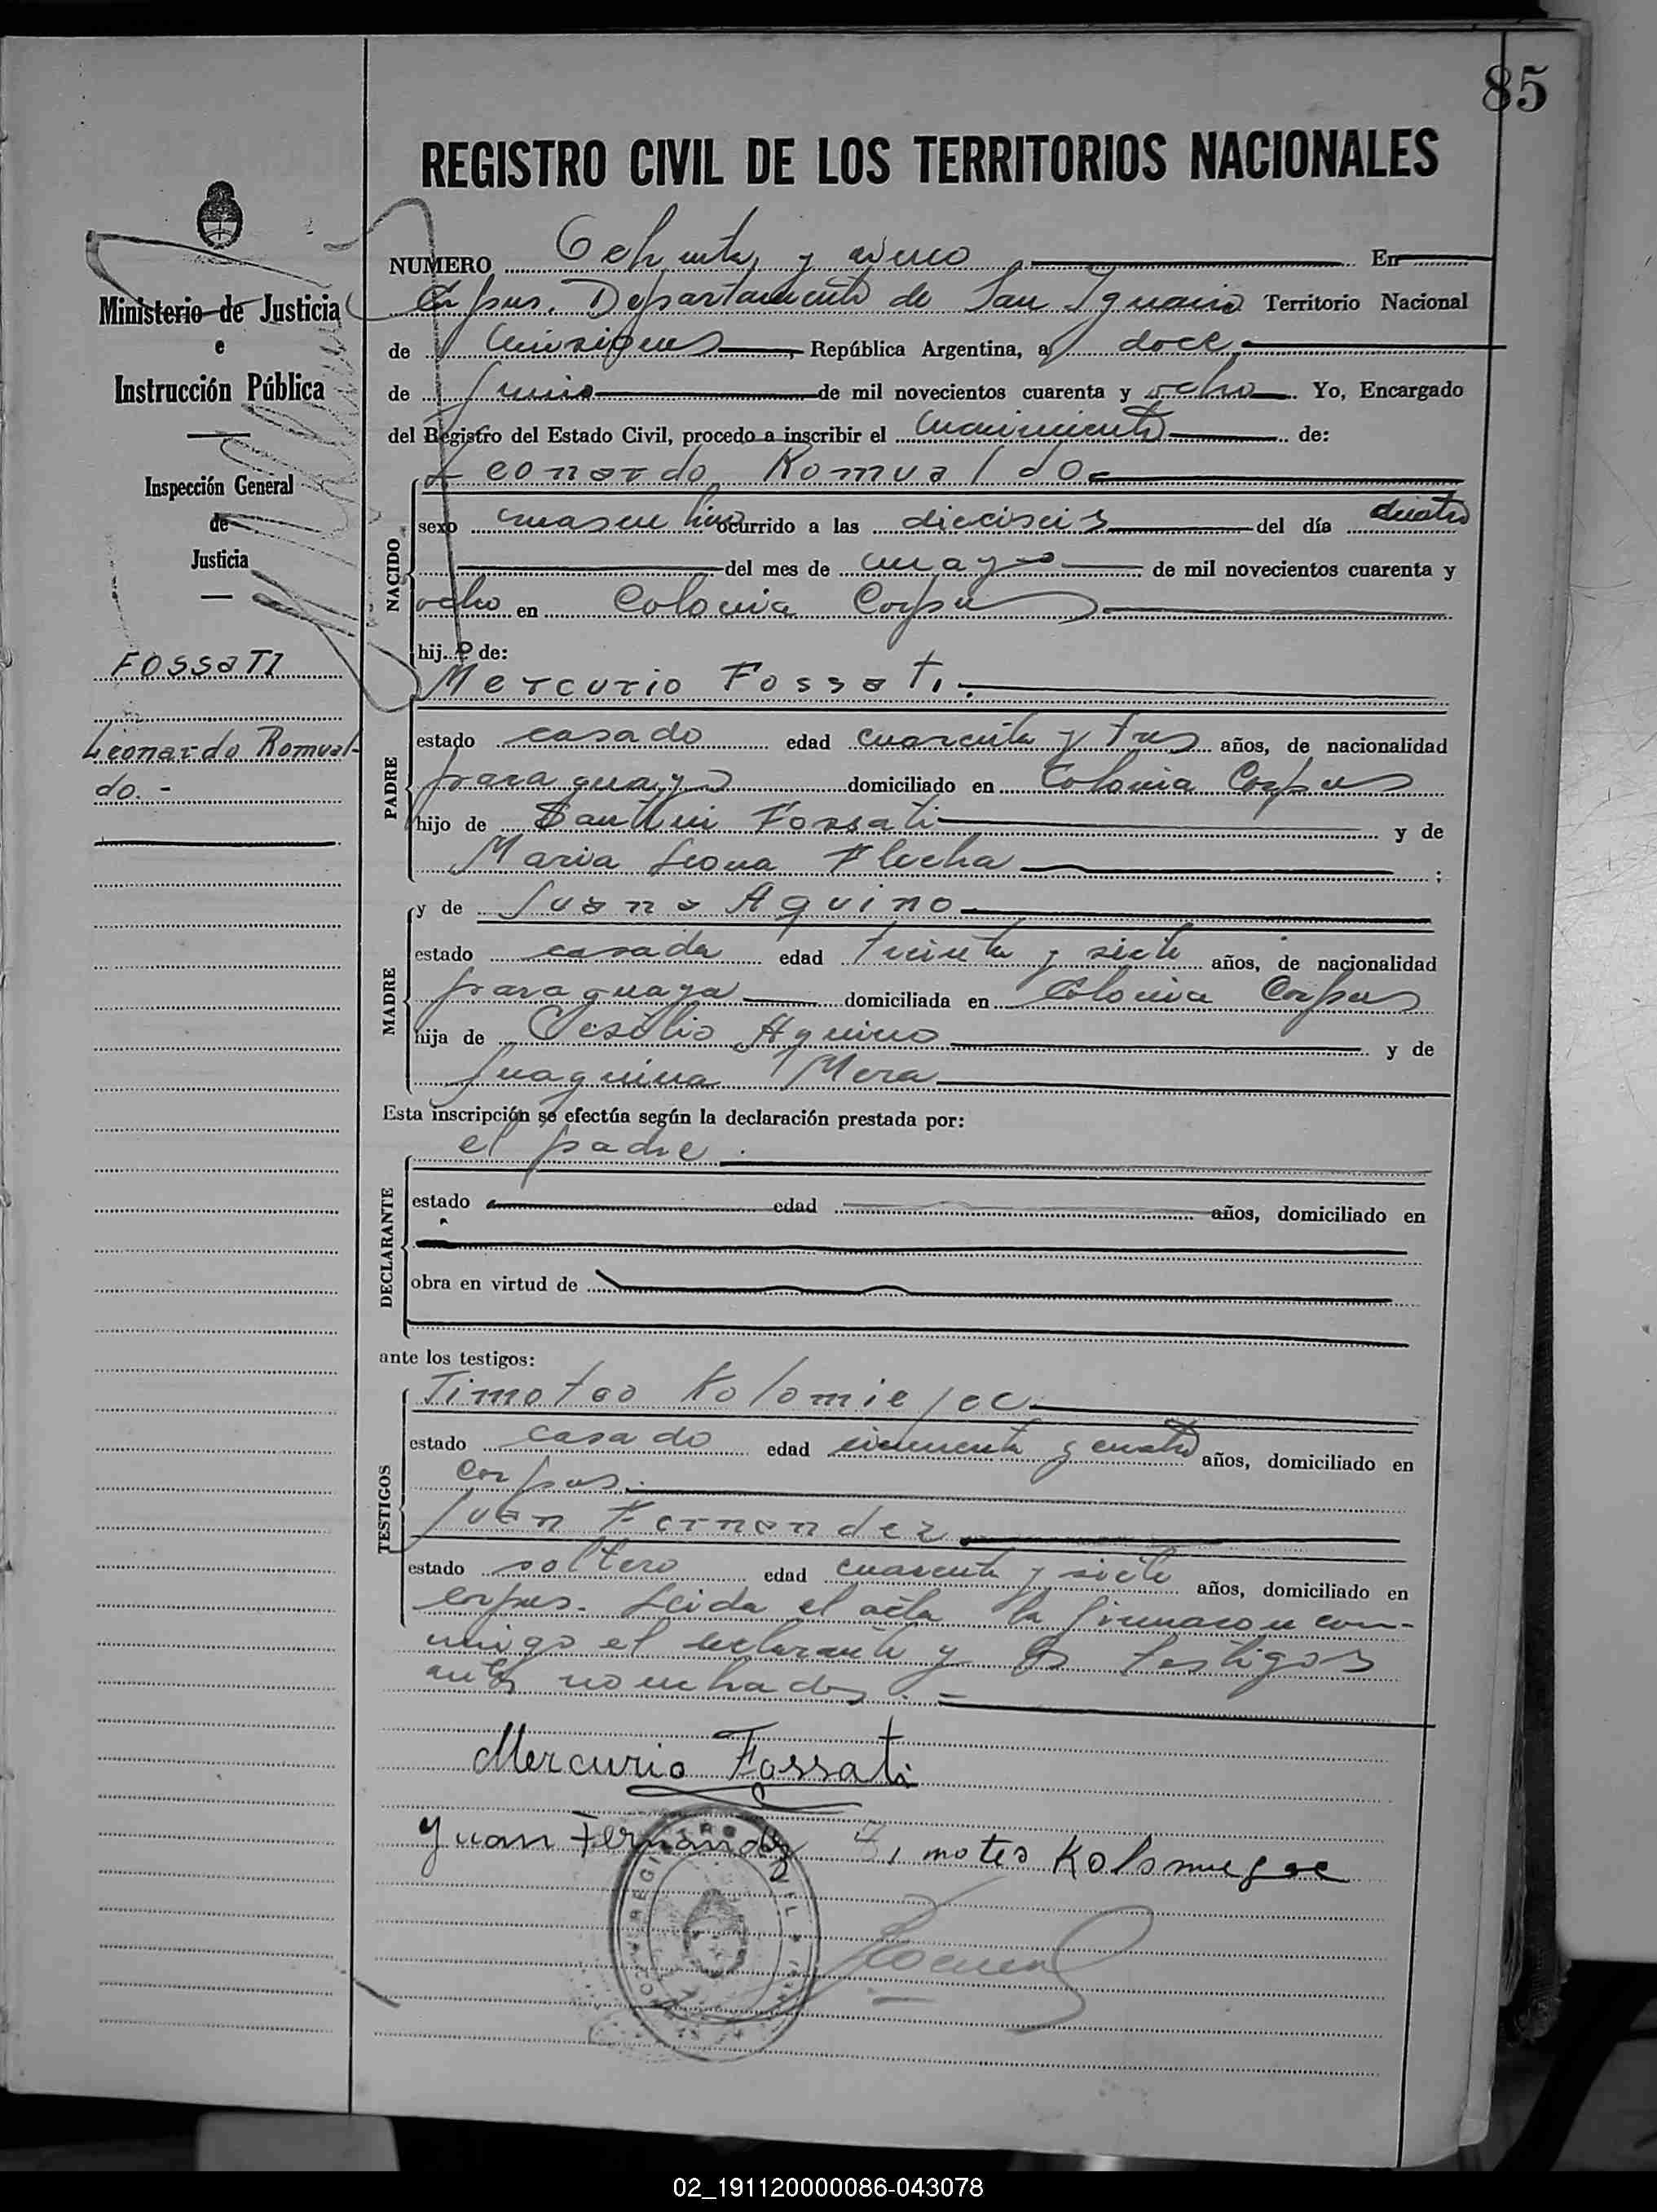 85
REGISTRO CIVIL DE LOS TERRITORIOS NACIONALES
NUMERO Ochenta y cinco En
Corpus, Departamento de San Ignacio Territorio Nacional
de Misiones, República Argentina, a doce
de Junio de mil novecientos cuarenta y ocho. Yo, Encargado
del Registro del Estado Civil, procedo a inscribir el nacimiento de:
Leonardo Romualdo
NACIDO
sexo masculino ocurrido a las dieciseis del día cuatro
del mes de mayo de mil novecientos cuarenta y
ocho en Colonia Corpus
hijo de:
Mercurio Fossati.
PADRE
estado casado edad cuarenta y tres años, de nacionalidad
paraguayo domiciliado en Colonia Corpus
hijo de Fossati y de
Maria Leona Flecha ;
MADRE
y de Juana Aquino
estado casada edad treinta y siete años, de nacionalidad
paraguaya domiciliada en Colonia Corpus
hija de Aquino y de
Juaquina Mera
Esta inscripción se efectúa según la declaración prestada por:
el padre.
DECLARANTE
estado edad años, domiciliado en
obra en virtud de
ante los testigos:
TESTIGOS
Timoteo Kolomiejec
estado casado edad cincuenta y cuatro años, domiciliado en
Corpus.
Juan Fernandez
estado soltero edad cuarenta y siete años, domiciliado en
Corpus. Leida el acta la firmaron con-
migo el declarante y los testigos
antes nombrados. =
Mercurio Fossati
Juan Fernandez Timoteo
Ministerio de Justicia
e
Instrucción Pública
Inspección General
de
Justicia
FOSSATI
Leonardo Romual-
do. -
02_191120000086-043078